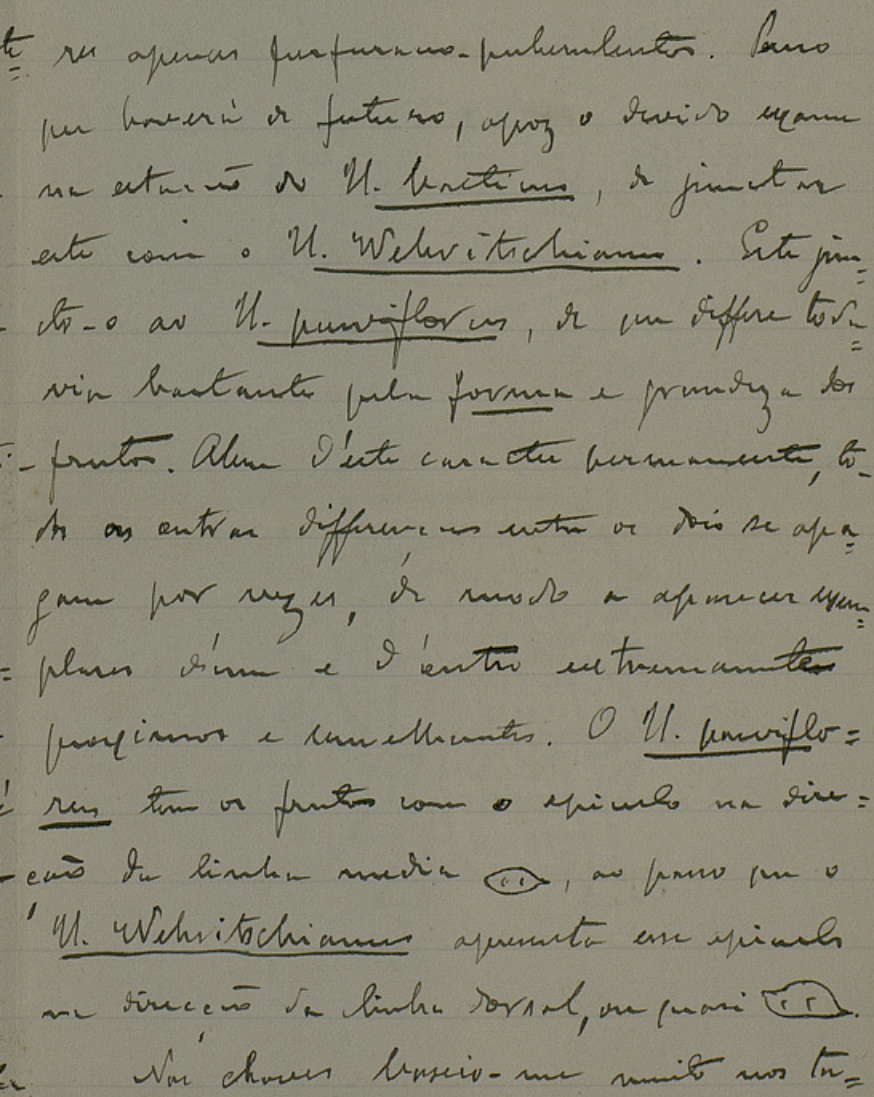 ser apenas furfuraceo-puberulentos. Penso
que haverá de futuro, apoz o devido exame
na estação do U. baeticus, de junctar
este com o U. Welwitschianus. Este jun=
cto-o ao U. parviflorus, de que differe toda=
via bastante pela forma e grandeza dos
fructos. Alem d'este caracter permanente, to-
dos os outros differenças entre os dois se apa=
gam por vezes, de modo a aparecer exem=
plares d'um e d'outro extremamente
proximos e semelhantes. O U. parviflo=
rus tem os fructos com o apiculo na dire=
cção da linha media, ao passo que o
U. Welwitschianus apresenta esse apiculo
na direcção da linha dorsal, ou quasi.
Nas chaves baseio-me muito nos ta=